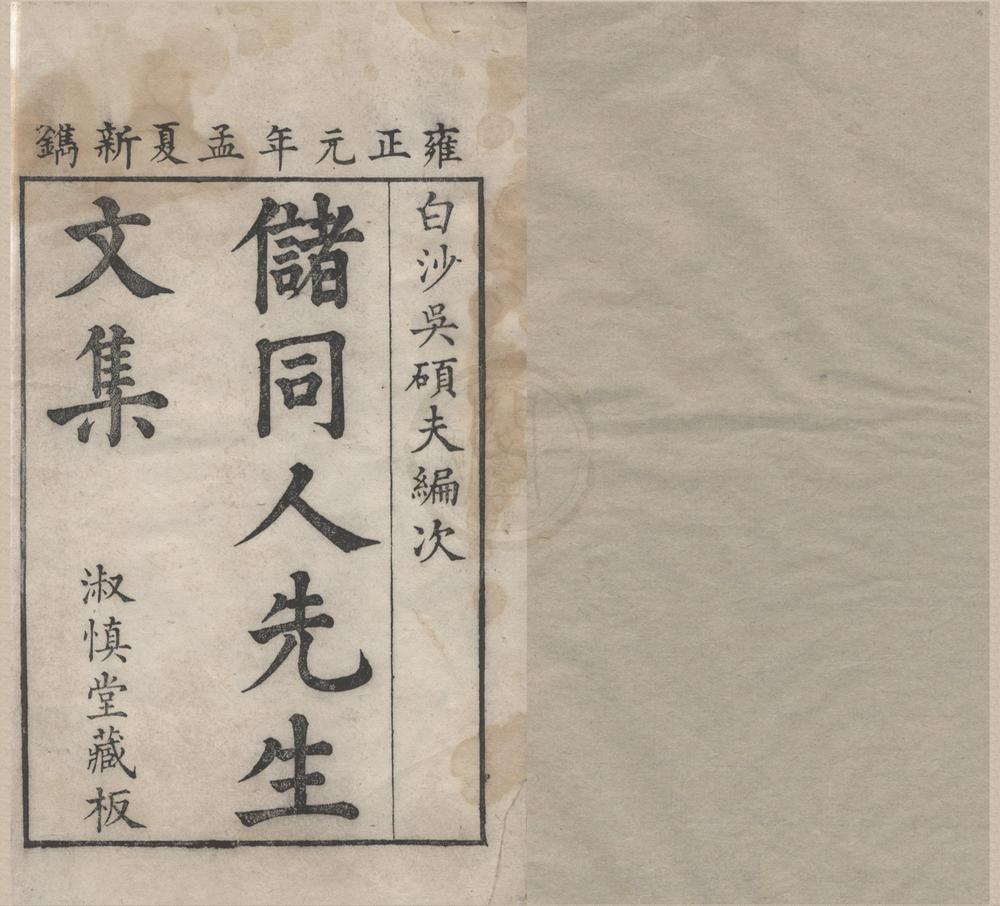 雍正元年孟夏新鐫
白沙吳碩夫編次
儲同人先生
文集
淑慎堂藏板